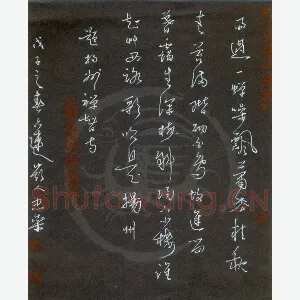 雨過一蟬噪飄蕭松桂秋
青苔滿階砌白鳥故遲留
暮靄生深樹斜陽下小樓誰
知竹西路歌吹是揚州
題揚州禪智寺
戊子之春
Shufawang.CN